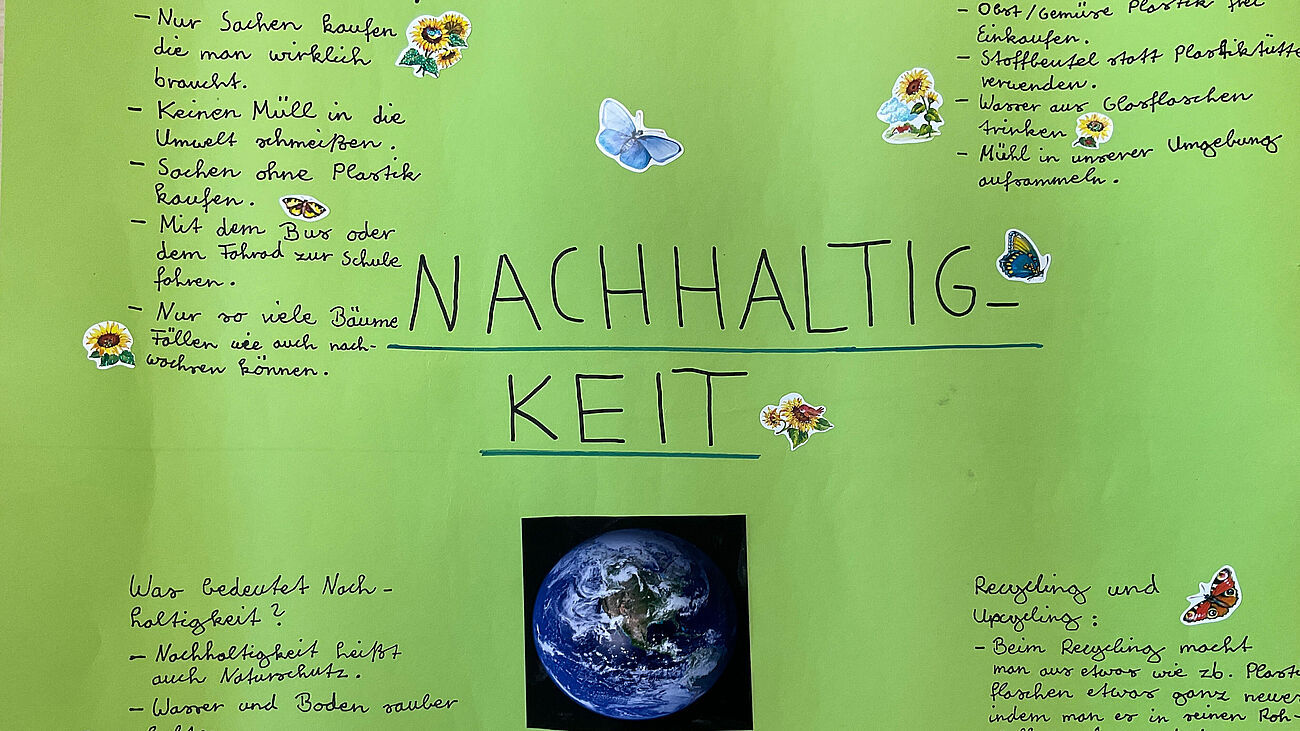 - Nur Sachen kaufen
die man wirklich
braucht.
- Keinen Müll in die
Umwelt schmeißen.
- Sachen ohne Plastik
kaufen.
- Mit dem Bus oder
dem Fahrad zur Schule
fahren.
- Nur so viele Bäume
Fällen wie auch nach-
wachsen können.
- Obst/Gemüse Plastik frei
Einkaufen.
- Stoffbeutel statt Plastiktütte
verwenden.
- Wasser aus Glasflaschen
trinken
- Mühl in unserer Umgebung
aufsammeln.
NACHHALTIG-
KEIT
Was bedeutet Nach-
haltigkeit?
- Nachhaltigkeit heißt
auch Naturschutz.
- Wasser und Boden sauber
Recycling und
Upcycling:
- Beim Recycling macht
man aus etwas wie zb. Plastik
flaschen etwas ganz neues
indem man es in seinen Roh-